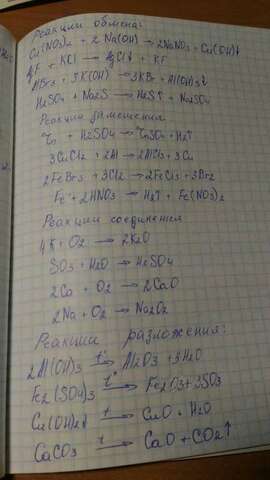 Реакции обмена:
Cu(NO3)2 + 2Na(OH) → 2NaNO3 + Cu(OH)↓
AgF + KCl → AgCl↓ + KF
AlBr3 + 3K(OH) → 3KBr + Al(OH)3↓
H2SO4 + Na2S → H2S↑ + Na2SO4
Реакции замещения
Zn + H2SO4 → ZnSO4 + H2↑
3CuCl2 + 2Al → 2AlCl3 + 3Cu
2FeBr3 + 3Cl2 → 2FeCl3 + 3Br2
Fe + 2HNO3 → H2↑ + Fe(NO3)2
Реакции соединения
4K + O2 → 2K2O
SO3 + H2O → H2SO4
2Ca + O2 → 2CaO
2Na + O2 → Na2O2
Реакции разложения:
2Al(OH)3 t→ Al2O3 + 3H2O
Fe2(SO4)3 t→ Fe2O3 + 3SO3
Cu(OH)2↓ t→ CuO + H2O
CaCO3 t→ CaO + CO2↑